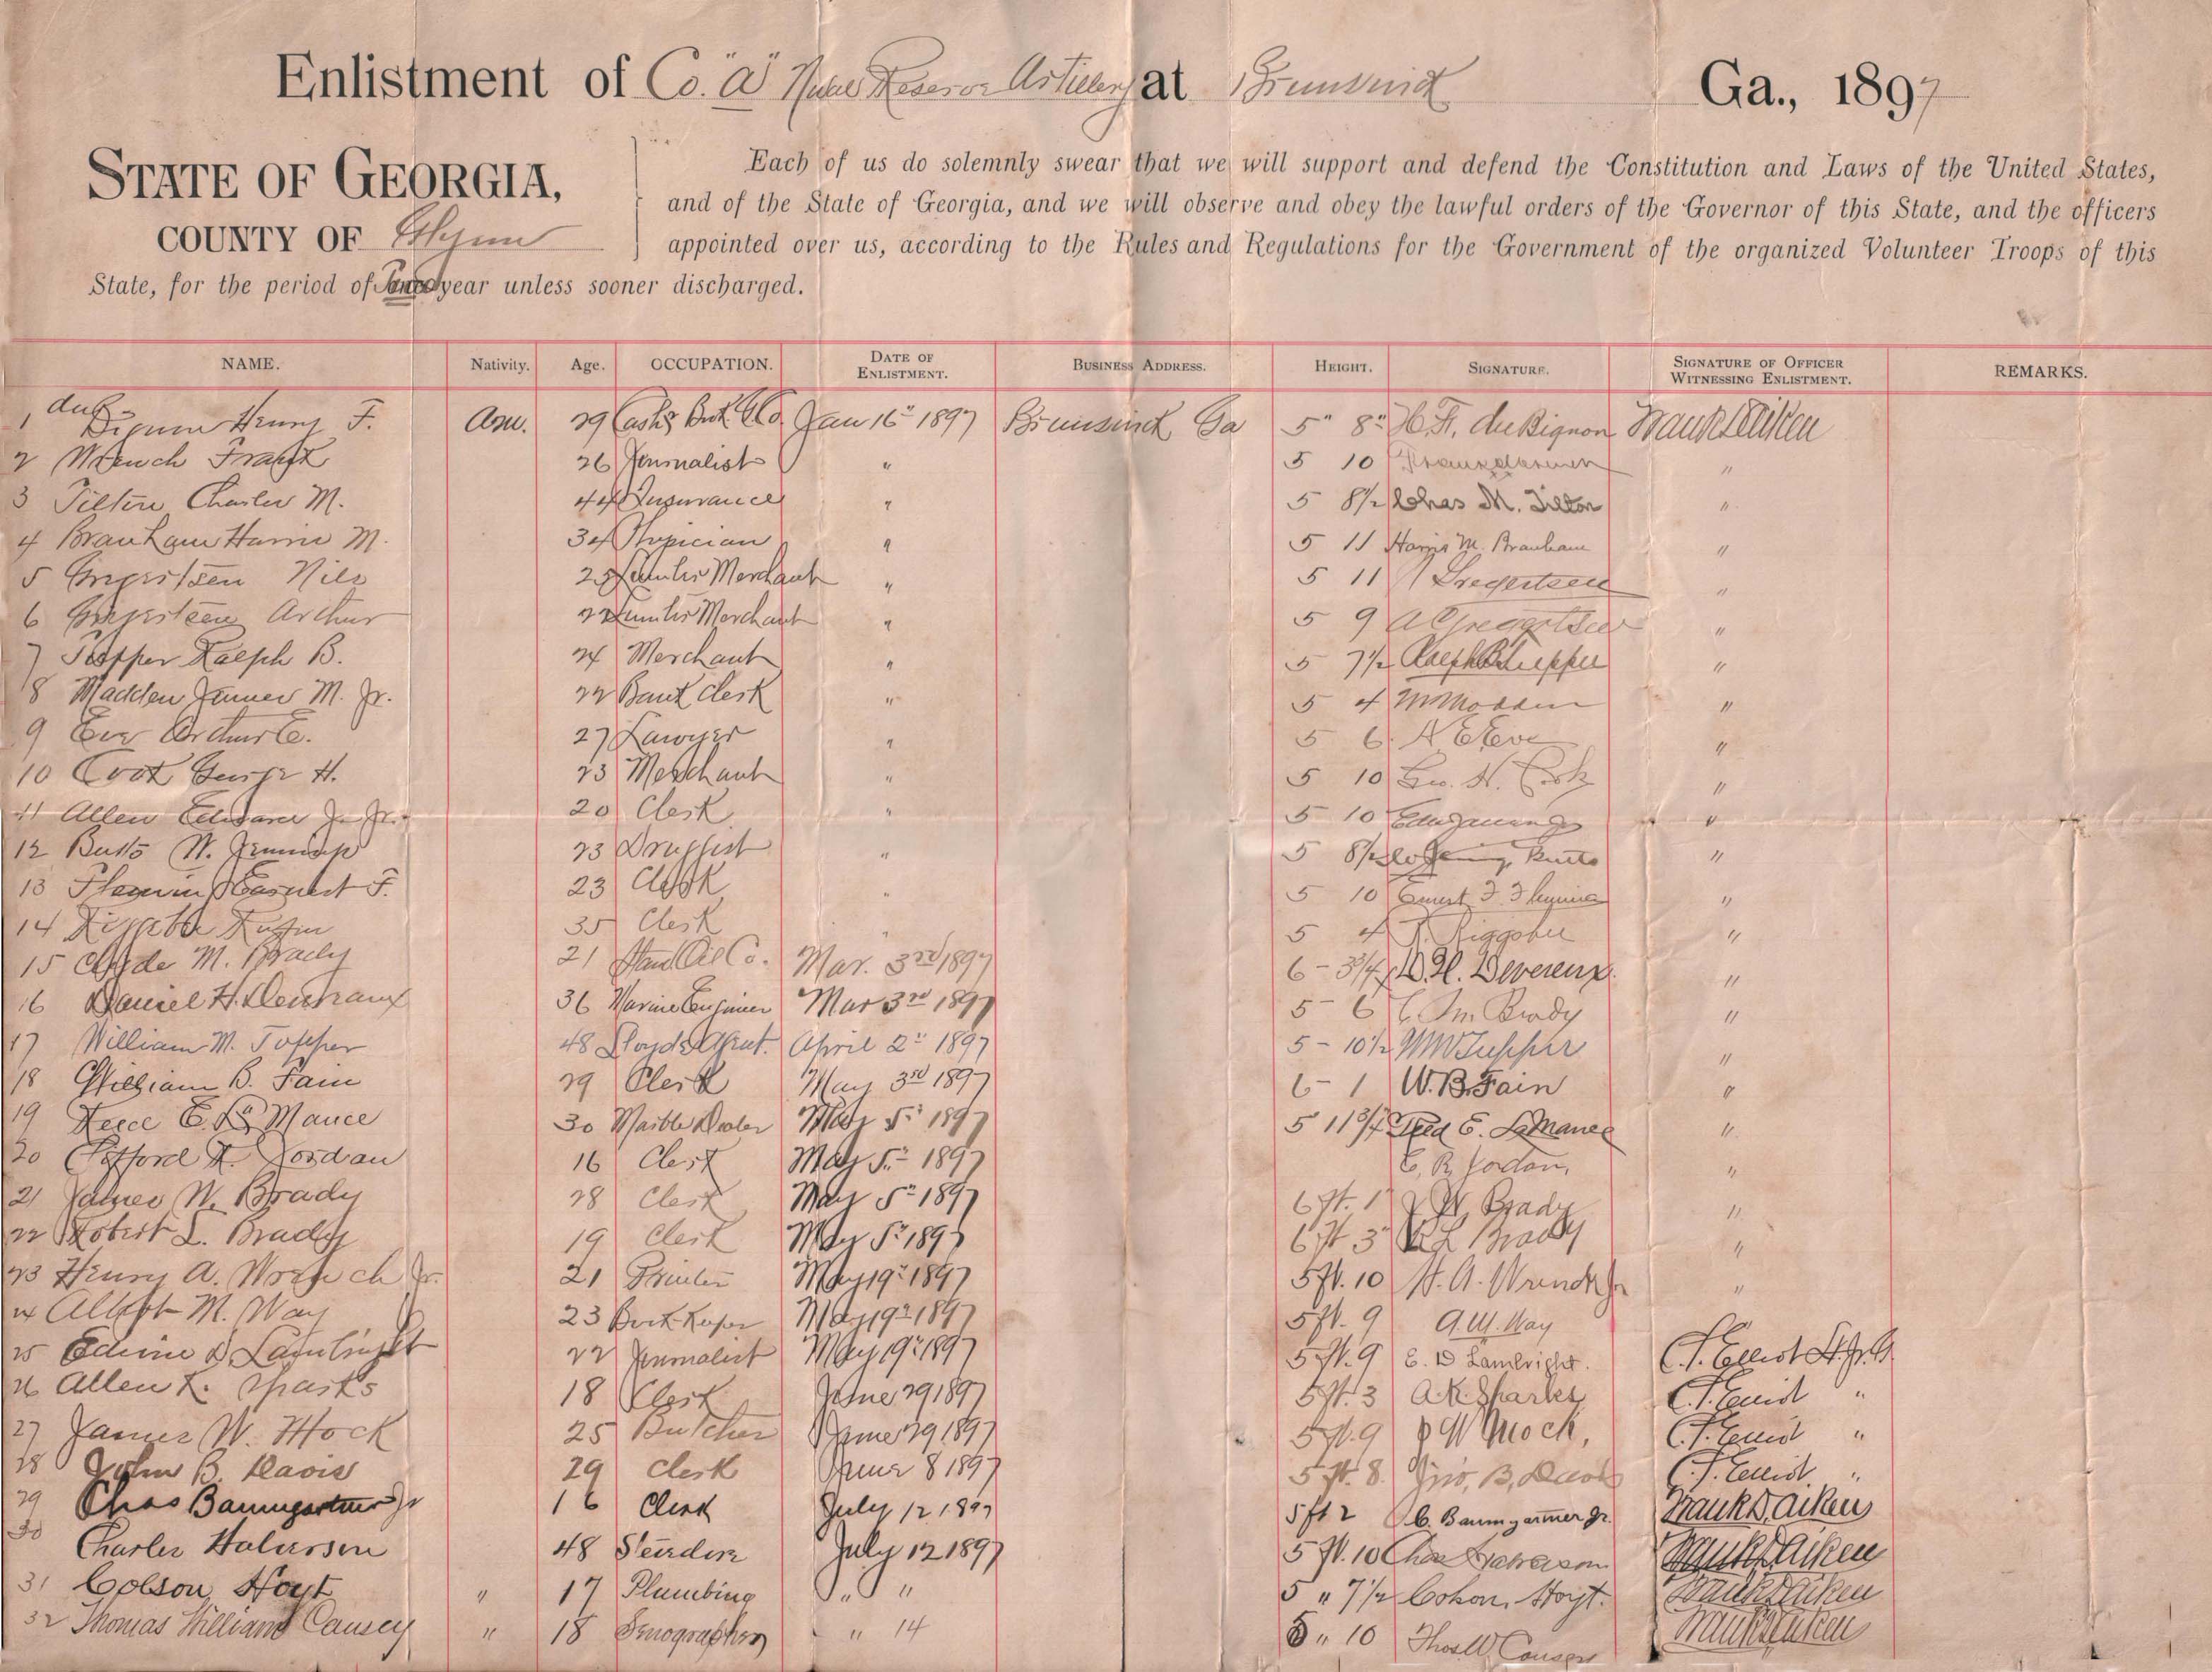 Enlistment of Co. "A" Naval Reserve Artillery at Brunswick Ga., 1897
STATE OF GEORGIA,
COUNTY OF Glynn
Each of us do solemnly swear that we will support and defend the Constitution and Laws of the United States,
and of the State of Georgia, and we will observe and obey the lawful orders of the Governor of this State, and the officers
appointed over us, according to the Rules and Regulations for the Government of the organized Volunteer Troops of this
State, for the period of year unless sooner discharged.
NAME. Nativity. Age. OCCUPATION. DATE OF ENLISTMENT. BUSINESS ADDRESS. HEIGHT. SIGNATURE. SIGNATURE OF OFFICER WITNESSING ENLISTMENT. REMARKS.
1 duBignon Henry F. Am. 29 Jan 16" 1897 Brunswick Ga 5" 8" H. F. duBignon Frank D. Aiken
2 Wrench Frank 26 Journalist " 5 10 "
3 Tilton Charles M. 44 Insurance " 5 8½ Chas M. Tilton "
4 Branham Harris M. 34 Physician " 5 11 Harris M. Branham "
5 Gregertsen Nils 25 Lumber Merchant " 5 11 Gregertsen "
6 Gregertsen Arthur 22 Lumber Merchant " 5 9 A Gregertsen "
7 Tupper Ralph B. 24 Merchant " 5 7½ Ralph B Tupper "
8 Madden James M. Jr. 22 Bank Clerk " 5 4 Madden "
9 Eve Arthur E. 27 Lawyer " 5 6 A E Eve "
10 Cook George H. 23 Merchant " 5 10 Geo. H. Cook "
11 Allen Edward J. Jr. 20 Clerk " 5 10 "
12 Butts W. Jennings 23 Druggist " 5 8½ Butts "
13 Fleming Earnest F. 23 Clerk " 5 10 Ernest F Fleming "
14 35 Clerk " 5 4 "
15 Clyde M. Brady 21 Stand Oil Co. Mar. 3rd 1897 6 - 3¾ D. H. Devereux. "
16 Daniel H. Devereaux 36 Marine Engineer Mar 3rd 1897 5 - 6 C. M. Brady "
17 William M. Tupper 48 Lloyds Agent. April 2" 1897 5 - 10½ WM Tupper "
18 William B. Fain 29 Clerk May 3rd 1897 6 - 1 W. B. Fain "
19 E. La Mance 30 Marble Dealer May 5" 1897 5 11¾ Fred E. LaMance "
20 Clifford R. Jordan 16 Clerk May 5" 1897 C. R. Jordan, "
21 James W. Brady 28 Clerk May 5" 1897 6 ft. 1" J. W. Brady "
22 Robert L. Brady 19 Clerk May 5" 1897 6 ft 3" R L Brady "
23 Henry A. Wrench Jr. 21 Printer May 19" 1897 5 ft. 10 H. A. Wrench Jr "
24 Albert M. Way 23 Book-Keeper May 19" 1897 5 ft. 9 A. M. Way
25 Edwin D. Lambright 22 Journalist May 19" 1897 5 ft. 9 E. D Lambright. C. T. Elliot Lt. J. G.
26 Allen K. Sparks 18 Clerk June 29 1897 5 ft. 3 A. K. Sparks C. T. Elliot "
27 James W. Mock 25 Butcher June 29 1897 5 ft. 9 J W Mock, C. T. Elliot "
28 John B. Davis 29 Clerk June 8 1897 5 ft. 8. Jno. B. Davis C. T. Elliot "
29 Chas Baumgartner Jr 16 Clerk July 12 1897 5 ft 2 C. Baumgartner Jr. Frank D. Aiken
30 Charles Halverson 48 July 12 1897 5 ft. 10 Chas Halverson Frank D Aiken
31 Colson Hoyt " 17 Plumbing " " 5 " 7½ Colson Hoyt. Frank D Aiken
32 Thomas William Causey " 18 Stenographer " 14 5 " 10 Thos. W. Causey Frank D Aiken